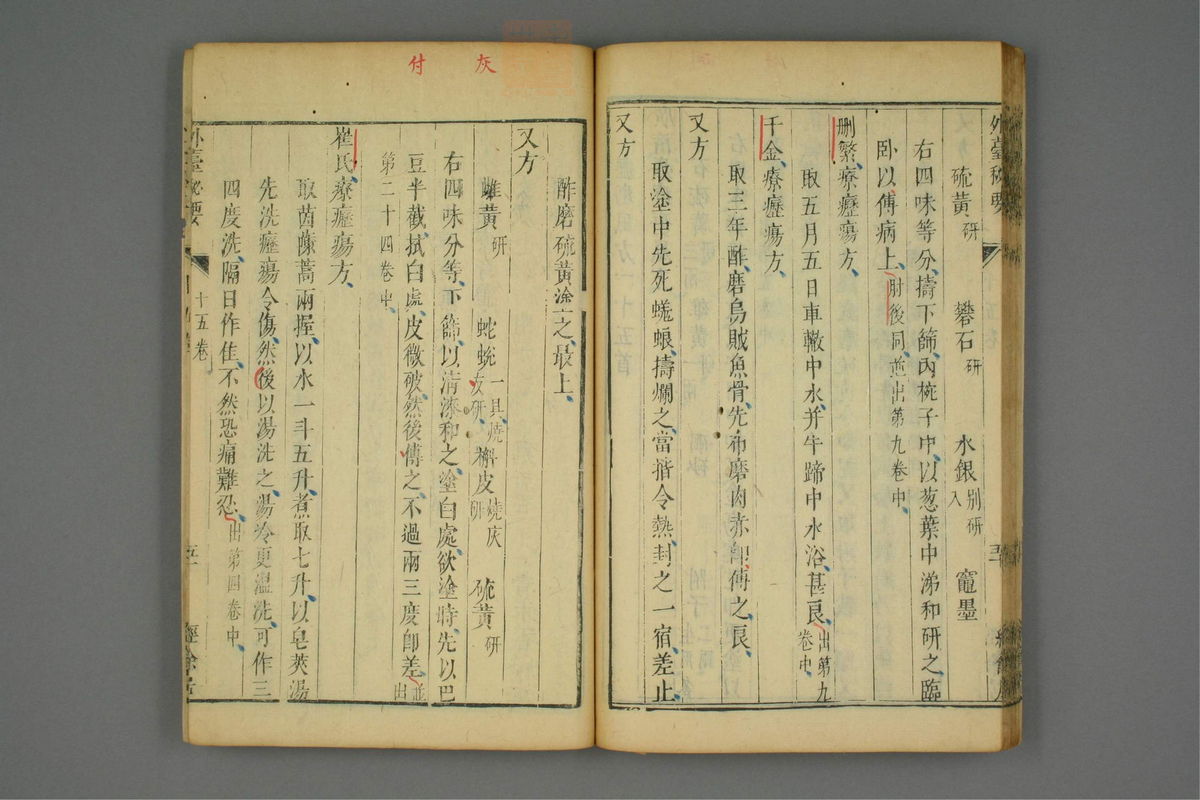 外臺秘要
硫黄研 礬石研 水銀別研入 竈墨
右四味等分擣下篩內椀子中以葱葉中涕和研之臨
卧以傅病上肘後同並出第九卷中
刪繁療癧瘍方
取五月五日車轍中水并牛蹄中水浴甚良出第九卷中
千金療癧瘍方
取三年酢磨烏賊魚骨先布磨肉赤即傅之良
又方
取塗中先死蜣蜋擣爛之當揩令熱封之一宿差止
又方
灰 付
酢磨硫黄塗之最上
又方
雄黄研 蛇蛻一具燒灰研 槲皮燒灰研 硫黄研
右四味分等下篩以清漆和之塗白處欲塗時先以巴
豆半截拭白處皮微破然後傅之不過兩三度即差並出
第二十四卷中
崔氏療癧瘍方
取茵蔯蒿兩握以水一斗五升煮取七升以皂莢湯
先洗癧瘍令傷然後以湯洗之湯冷更溫洗可作三
四度洗隔日作佳不然恐痛難忍出第四卷中
外臺秘要
十五卷